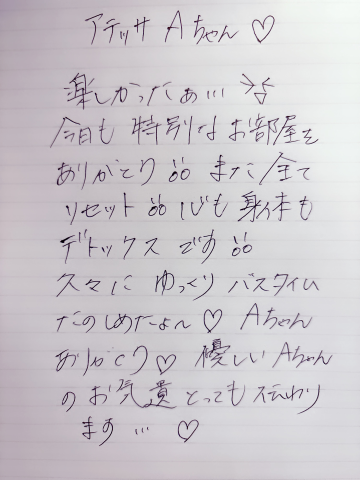 アテッサ Aちゃん ♡
楽しかったぁ…
今日も 特別な お部屋を
ありがとう !! また 全て
リセット !! 心も 身体も
デトックス です !!
久々に ゆっくり バスタイム
たのしめたよ〜 ♡ Aちゃん
ありがとう ♡ 優しい Aちゃん
の お気遣 とっても 伝わり
ます … ♡